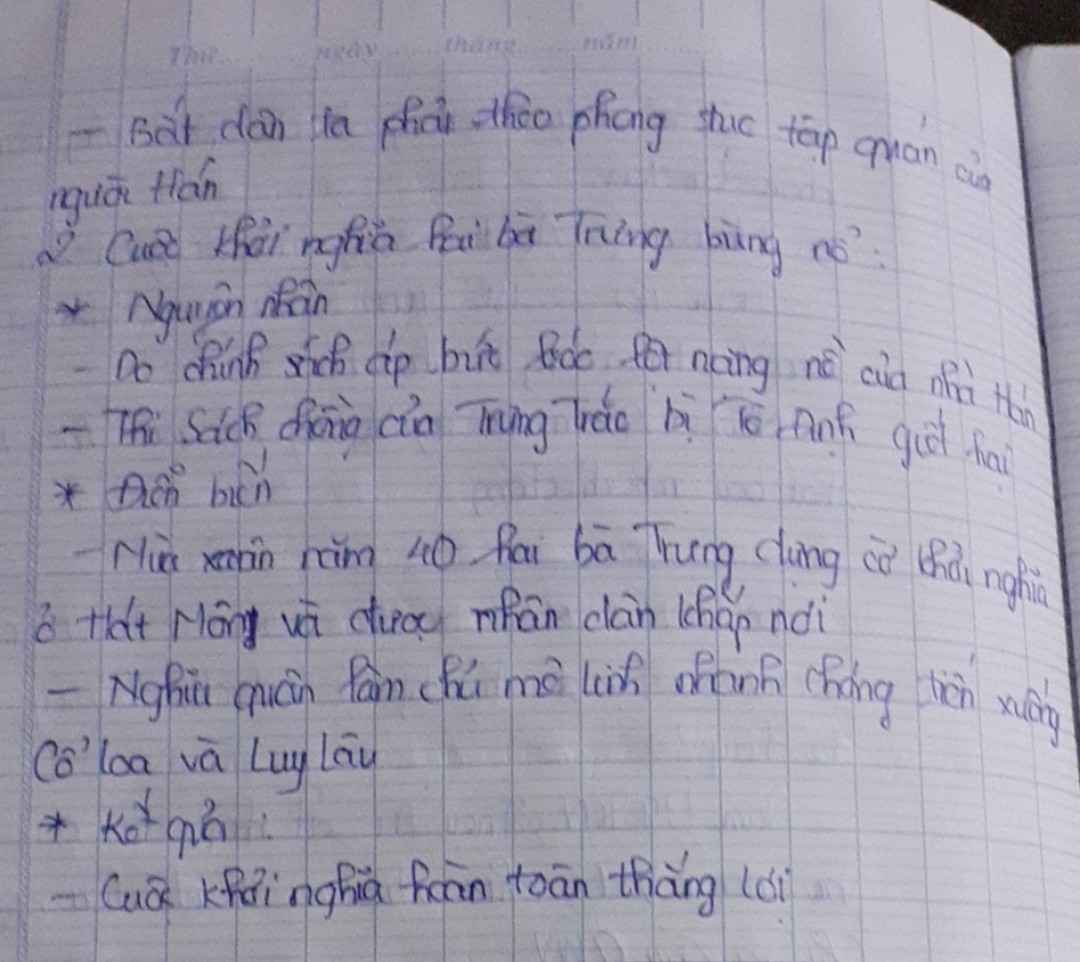 Thứ ngày tháng năm
- Bắt dân ta phải theo phong tục tập quán của
người Hán
2. Cuộc khởi nghĩa hai bà Trưng bùng nổ:
* Nguyên nhân
- Do chính sách áp bức bóc lột nặng nề của nhà Hán
- Thi Sách chồng của Trưng Trắc bị Tô Định giết hại
* Diễn biến
- Mùa xuân năm 40 hai bà Trưng dựng cờ khởi nghĩa
ở Hát Môn và được nhân dân khắp nơi
- Nghĩa quân làm chủ mê linh nhanh chóng tiến xuống
Cổ loa và Luy lâu
* Kết quả:
- Cuộc khởi nghĩa hoàn toàn thắng lợi